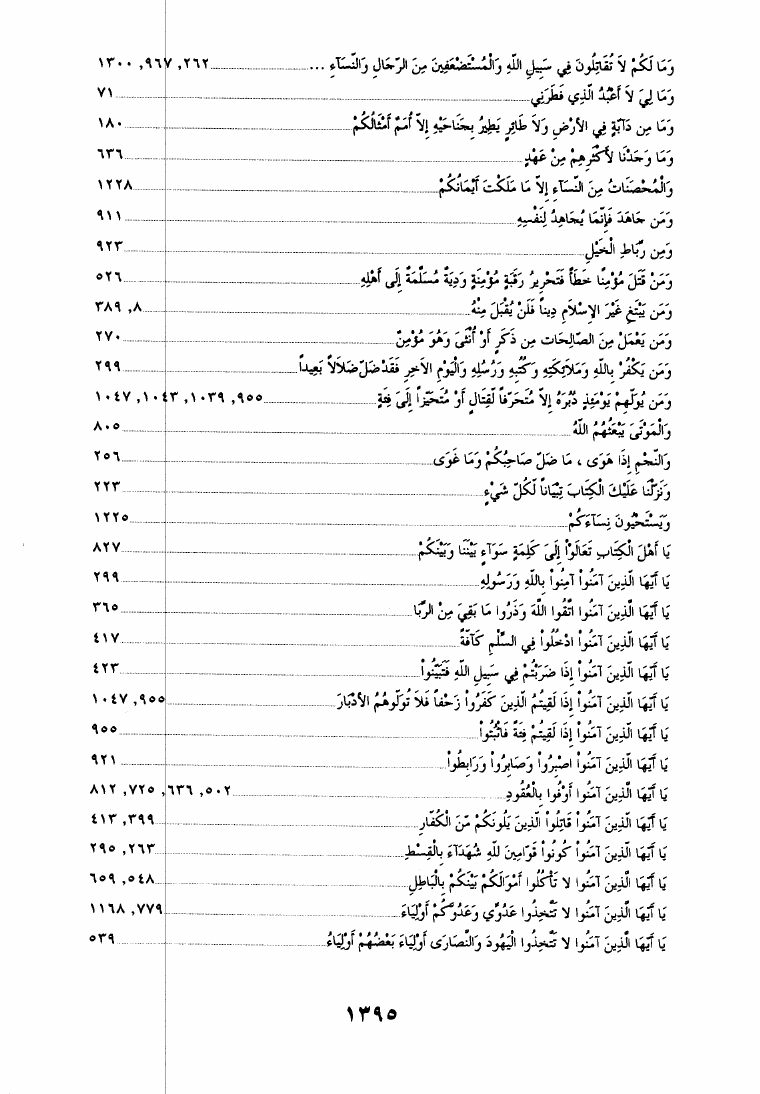 وَمَا لَكُمْ لاَ تُقَاتِلُونَ فِي سَبِيلِ اللّهِ وَالْمُسْتَضْعَفِينَ مِنَ الرِّجَالِ وَالنِّسَآءِ ... ٢٦٢, ٩٦٧, ١٣٠٠
وَمَا لِيَ لاَ أَعْبُدُ الَّذِي فَطَرَنِي ٧١
وَمَا مِن دَآبَّةٍ فِي الأَرْضِ وَلاَ طَائِرٍ يَطِيرُ بِجَنَاحَيْهِ إِلاَّ أُمَمٌ أَمْثَالُكُمْ ١٨٠
وَمَا وَجَدْنَا لأَكْثَرِهِمْ مِنْ عَهْدٍ ٦٣٦
وَالْمُحْصَنَاتُ مِنَ النِّسَآءِ إِلاَّ مَا مَلَكْتَ أَيْمَانُكُمْ ١٢٢٨
وَمَن جَاهَدَ فَإِنَّمَا يُجَاهِدُ لِنَفْسِهِ ٩١١
وَمِن رِّبَاطِ الْخَيْلِ ٩٢٣
وَمَنْ قَتَلَ مُؤْمِنًا خَطَأً فَتَحْرِيرُ رَقَبَةٍ مُؤْمِنَةٍ وَدِيَةٌ مُسَلَّمَةٌ إِلَى أَهْلِهِ ٥٢٦
وَمَن يَبْتَغِ غَيْرَ الإِسْلاَمِ دِيناً فَلَنْ يُقْبَلَ مِنْهُ ٨, ٣٨٩
وَمَن يَعْمَلْ مِنَ الصَّالِحَات مِن ذَكَرٍ أَوْ أُنْثَى وَهُوَ مُؤْمِنٌ ٢٧٠
وَمَن يَكْفُرْ بِاللّهِ وَمَلاَئِكَتِهِ وَكُتُبِهِ وَرُسُلِهِ وَالْيَوْمِ الآخِرِ فَقَدْ ضَلَّ ضَلاَلاً بَعِيداً ٢٩٩
وَمَن يُوَلِّهِمْ يَوْمَئِذٍ دُبُرَهُ إِلاَّ مُتَحَرِّفاً لِّقِتَالٍ أَوْ مُتَحَيِّزاً إِلَى فِئَةٍ ٩٥٥, ١٠٣٩, ١٠٤٣, ١٠٤٧
وَالْمَوْتَى يَبْعَثُهُمُ اللّهُ ٨٠٥
وَالنَّجْمِ إِذَا هَوَى ، مَا ضَلَّ صَاحِبُكُمْ وَمَا غَوَى ٢٥٦
وَنَزَّلْنَا عَلَيْكَ الْكِتَابَ تِبْيَاناً لِّكُلِّ شَيْءٍ ٢٢٣
وَيَسْتَحْيُونَ نِسَاءَكُمْ ١٢٢٥
يَا أَهْلَ الْكِتَابِ تَعَالَوْاْ إِلَى كَلِمَةٍ سَوَآءٍ بَيْنَنَا وَبَيْنَكُمْ ٨٢٧
يَا أَيّهَا الَّذِينَ آمَنُواْ آمِنُواْ بِاللّهِ وَرَسُولِهِ ٢٩٩
يَا أَيّهَا الَّذِينَ آمَنُوا اتَّقُوا اللّهَ وَذَرُوا مَا بَقِيَ مِنَ الرِّبَا ٣٦٥
يَا أَيّهَا الَّذِينَ آمَنُواْ ادْخُلُواْ فِي السِّلْمِ كَآفَّةً ٤١٧
يَا أَيّهَا الَّذِينَ آمَنُواْ إِذَا ضَرَبْتُمْ فِي سَبِيلِ اللّهِ فَتَبَيَّنُواْ ٤٢٣
يَا أَيّهَا الَّذِينَ آمَنُواْ إِذَا لَقِيتُمُ الَّذِينَ كَفَرُواْ زَحْفاً فَلاَ تُوَلُّوهُمُ الأَدْبَارَ ٩٥٥, ١٠٤٧
يَا أَيّهَا الَّذِينَ آمَنُواْ إِذَا لَقِيتُمْ فِئَةً فَاثْبُتُواْ ٩٥٥
يَا أَيّهَا الَّذِينَ آمَنُواْ اصْبِرُواْ وَصَابِرُواْ وَرَابِطُواْ ٩٢١
يَا أَيّهَا الَّذِينَ آمَنُوا أَوْفُوا بِالْعُقُودِ ٥٠٢, ٦٣٦, ٧٢٥, ٨١٢
يَا أَيّهَا الَّذِينَ آمَنُواْ قَاتِلُواْ الَّذِينَ يَلُونَكُمْ مِّنَ الْكُفَّارِ ٣٩٩, ٤١٣
يَا أَيّهَا الَّذِينَ آمَنُواْ كُونُواْ قَوَّامِينَ للّهِ شُهَدَآءَ بِالْقِسْطِ ٢٦٣, ٢٩٥
يَا أَيّهَا الَّذِينَ آمَنُوا لا تَأْكُلُوا أَمْوَالَكُمْ بَيْنَكُمْ بِالْبَاطِلِ ٥٤٨, ٦٥٩
يَا أَيّهَا الَّذِينَ آمَنُوا لا تَتَّخِذُوا عَدُوِّي وَعَدُوَّكُمْ أَوْلِيَاءَ ٧٧٩, ١١٦٨
يَا أَيّهَا الَّذِينَ آمَنُوا لا تَتَّخِذُوا الْيَهُودَ وَالنَّصَارَى أَوْلِيَاءَ بَعْضُهُمْ أَوْلِيَاءُ ٥٣٩
١٣٩٥